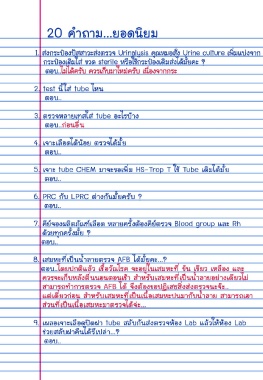 20 คำถาม...ยอดนิยม
1. ส่งกระป๋องปัสสาวะส่งตรวจ Urinalysis คุณหมอสั่ง Urine culture เพิ่มแบ่งจาก
กระป๋องเดิมใส่ ขวด sterile หรือใช้กระป๋องเดิมส่งได้มั้ยคะ ?
ตอบ..ไม่ได้ครับ ควรเก็บมาใหม่ครับ เนื่องจากกระ
2. test นี้ใส่ tube ไหน
ตอบ..
3. ตรวจหลายเทสใส่ tube อะไรบ้าง
ตอบ..ก่อนลืม
4. เจาะเลือดได้น้อย ตรวจได้มั้ย
ตอบ..
5. เจาะ tube CHEM มาจะขอเพิ่ม HS-Trop T ใช้ Tube เดิมได้มั้ย
ตอบ..
6. PRC กับ LPRC ต่างกันมั้ยครับ ?
ตอบ..
7. คีย์จองผลิตภัณฑ์เลือด หลายครั้งต้องคีย์ตรวจ Blood group และ Rh
ด้วยทุกครั้งมั้ย ?
ตอบ..
8. เสมหะที่เป็นน้ำลายตรวจ AFB ได้มั้ยคะ..?
ตอบ..โดยปกติแล้ว เชื้อวัณโรค จะอยู่ในเสมหะที่ ข้น เขียว เหลือง และ
ควรจะเก็บหลังตื่นนอนตอนเช้า สำหรับเสมหะที่เป็นน้ำลายอย่างเดียวไม่
สามารถทำการตรวจ AFB ได้ จึงต้องขอปฏิเสธสิ่งส่งตรวจนะจ้ะ..
แต่เดี๋ยวก่อน สำหรับเสมหะที่เป็นเนื้อเสมหะปนมากับน้ำลาย สามารถเอา
ส่วนที่เป็นเนื้อเสมหะมาตรวจได้จ่ะ...
9. เผลอเจาะเลือดปิดฝา tube สลับกันส่งตรวจห้อง Lab แล้วให้ห้อง Lab
ช่วยสลับฝาคืนได้รึเปล่า...?
ตอบ..